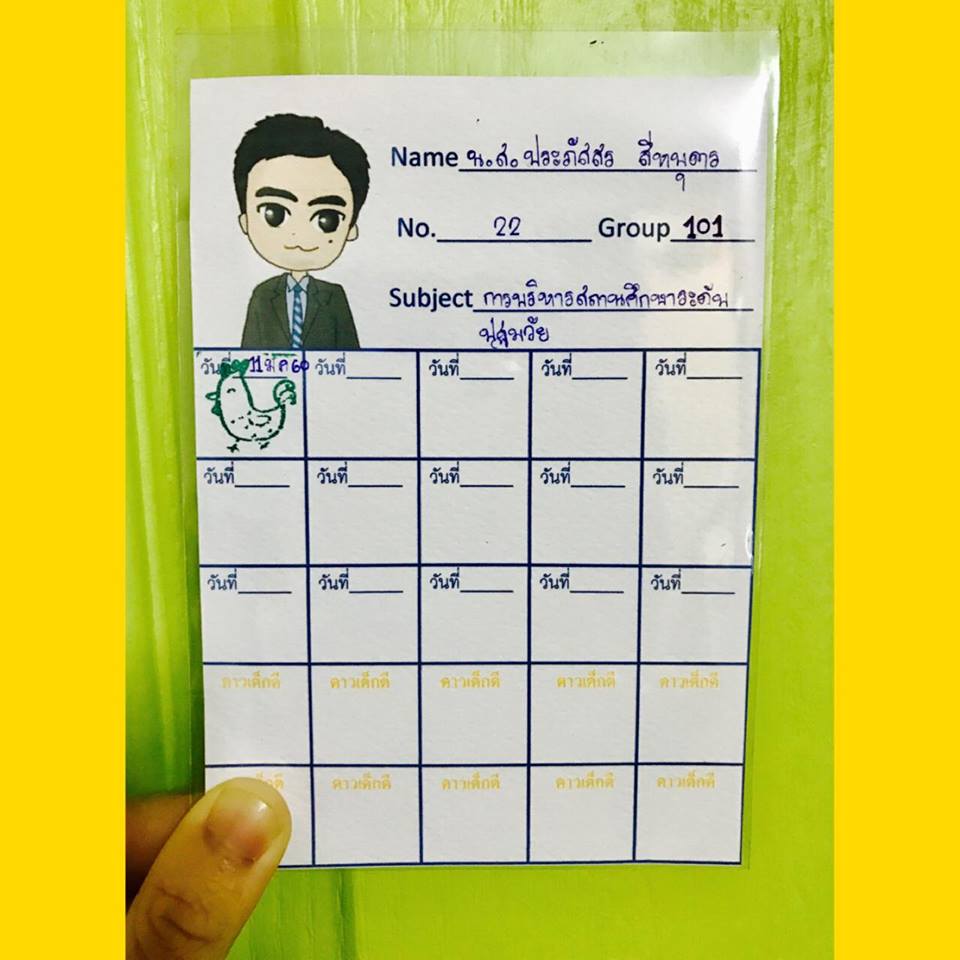 Name น.ส.ประภัสสร สีหนุตร
No. 22 Group 101
Subject การบริหารสถานศึกษาระดับ
ปฐมวัย
วันที่ 11 มี.ค 60 วันที่_____ วันที่_____ วันที่_____ วันที่_____
วันที่_____ วันที่_____ วันที่_____ วันที่_____ วันที่_____
วันที่_____ วันที่_____ วันที่_____ วันที่_____ วันที่_____
ดาวเด็กดี ดาวเด็กดี ดาวเด็กดี ดาวเด็กดี ดาวเด็กดี
เด็กดี ดาวเด็กดี ดาวเด็กดี ดาวเด็กดี ดาวเด็กดี